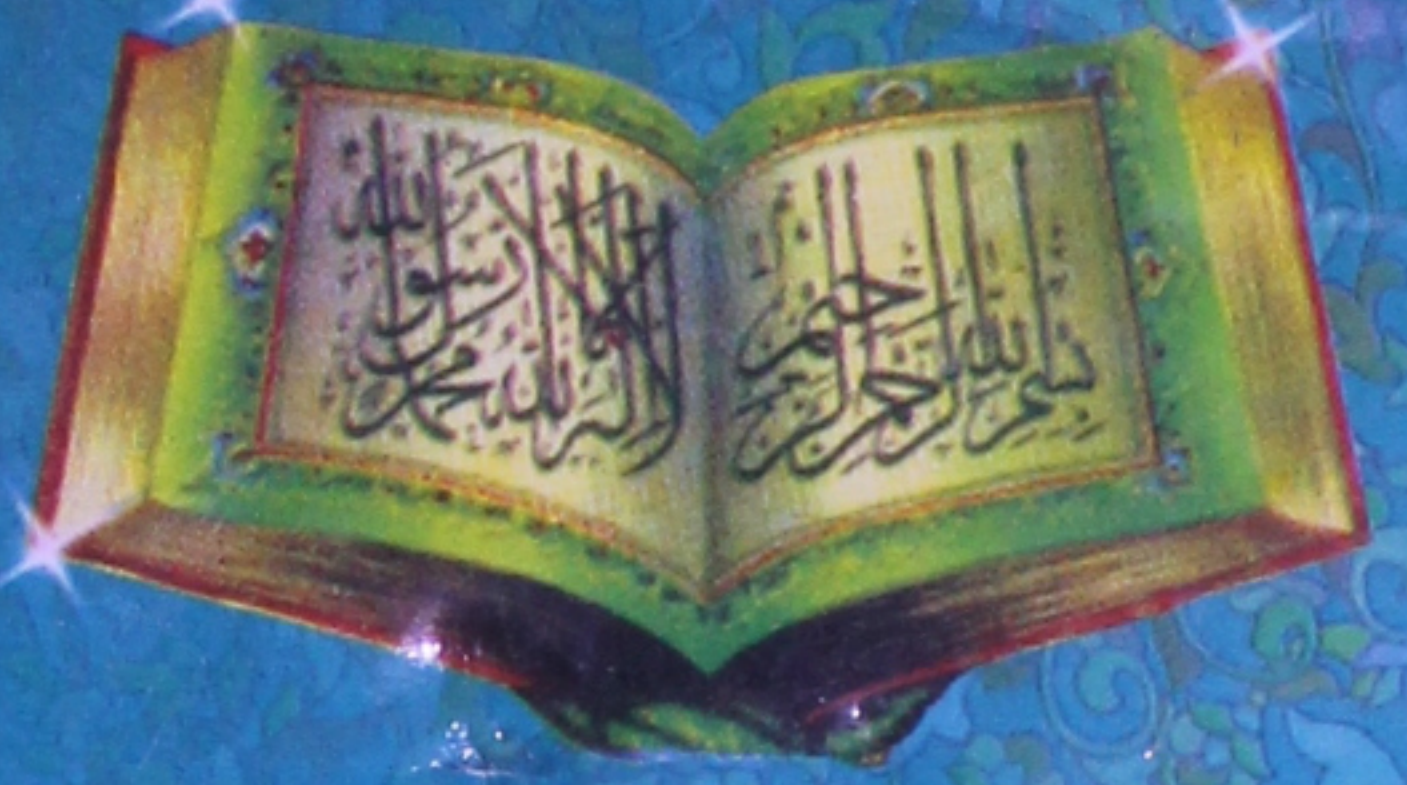 بسم الله الرحمن الرحيم
لا إله إلا الله محمد رسول الله